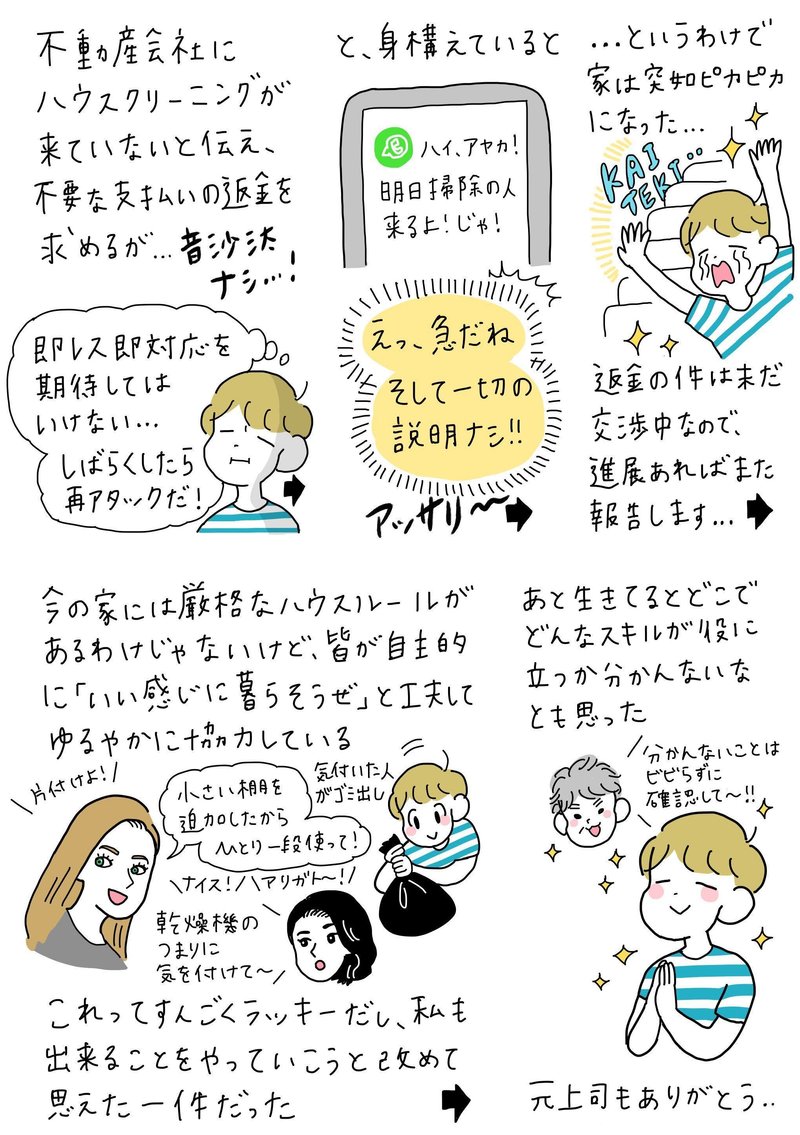 不動産会社に
ハウスクリーニングが
来ていないと伝え、
不要な支払いの返金を
求めるが…音沙汰
ナシ…!
即レス即対応を
期待しては
いけない…
しばらくしたら
再アタックだ!
と、身構えていると
ハイ、アヤカ!
明日掃除の人
来るよ!じゃ!
えっ、急だね
そして一切の
説明ナシ!!
アッサリ〜
…というわけで
家は突如ピカピカ
になった…
KAI
TEKI..
返金の件は未だ
交渉中なので、
進展あればまた
報告します…
今の家には厳格なハウスルールが
あるわけじゃないけど、皆が自主的
に「いい感じに暮らそうぜ」と工夫して
ゆるやかに協力している
片付けよ!
小さい棚を
追加したから
ひとり一段使って!
気付いた人
がゴミ出し
ナイス!
アリガト〜!
乾燥機の
つまりに
気を付けて〜
これってすんごくラッキーだし、私も
出来ることをやっていこうと改めて
思えた一件だった
あと生きてるとどこで
どんなスキルが役に
立つか分かんないな
とも思った
分かんないことは
ビビらずに
確認して〜!!
元上司もありがとう..